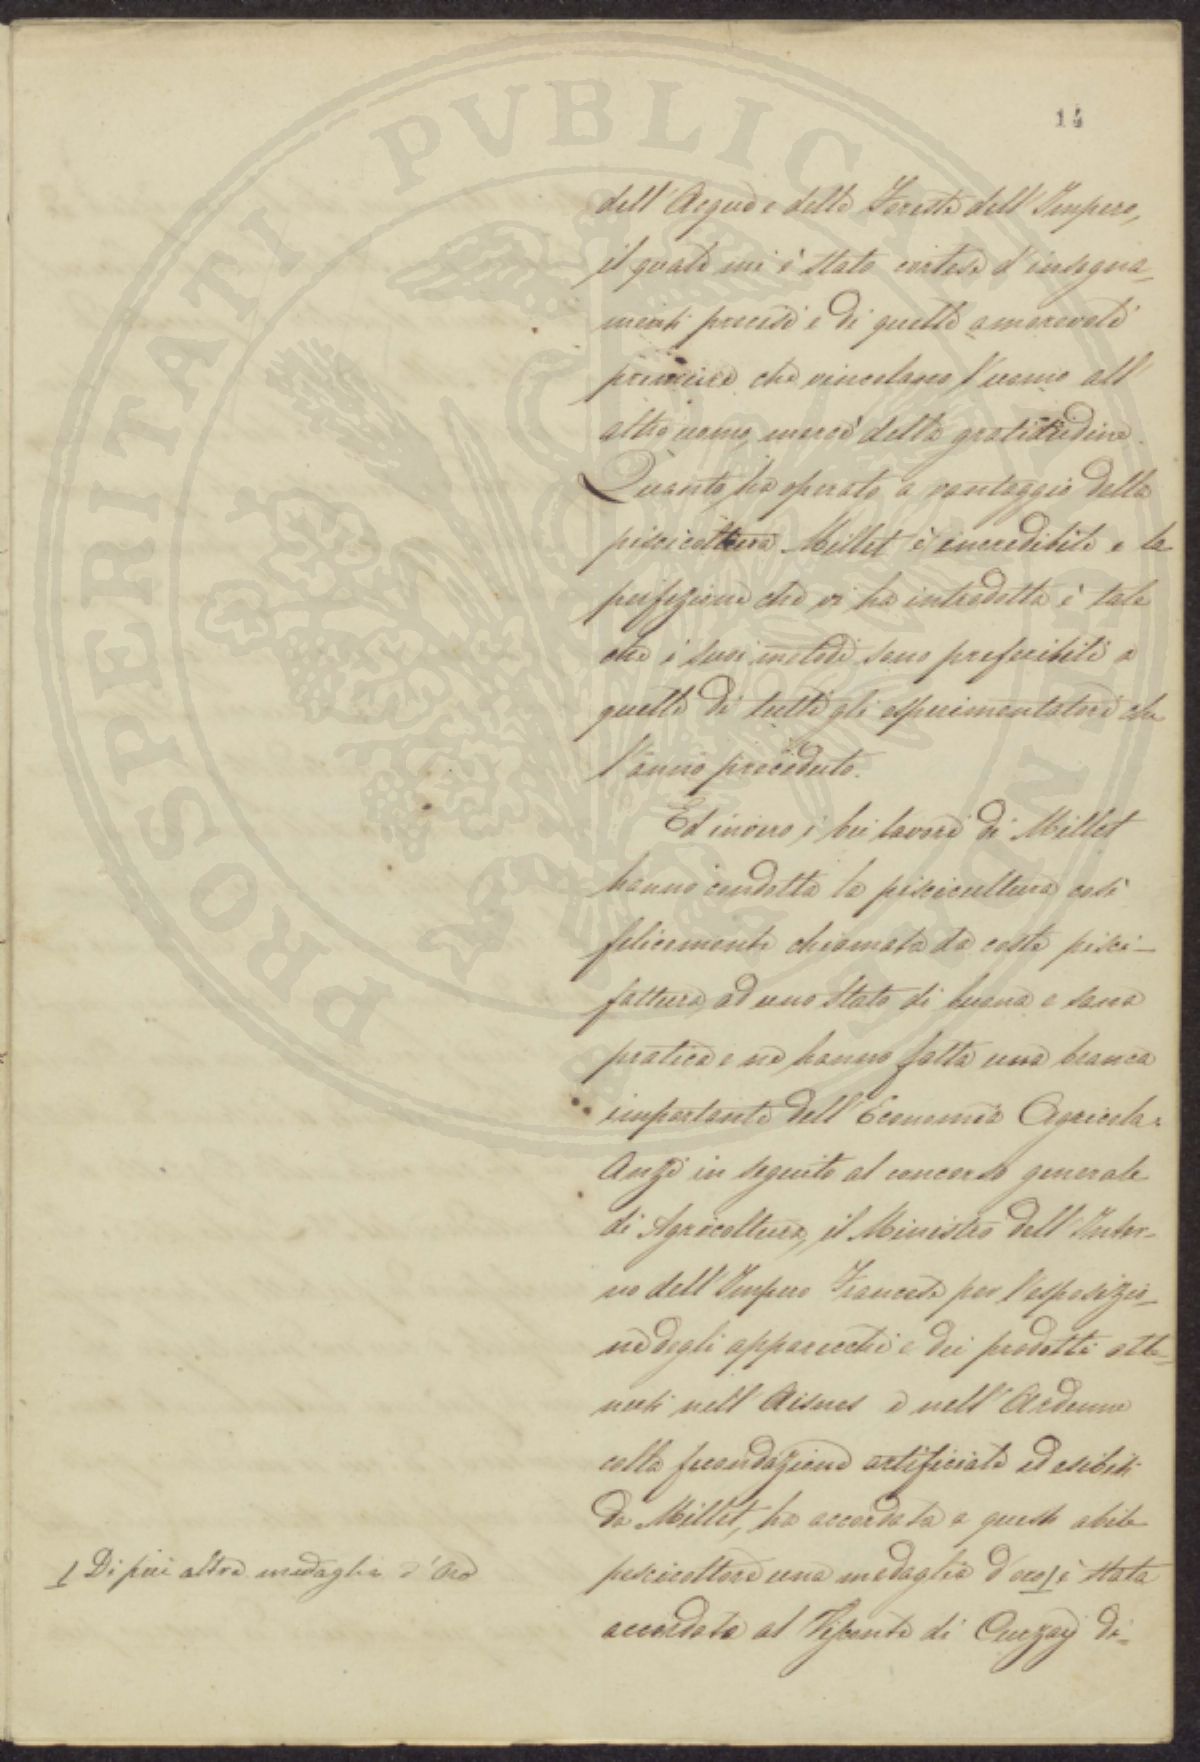 14
dell'Acque e delle Foreste dell'Impero,
il quale mi è stato cortese d'insegna-
menti precisi e di quelle amorevoli
premure che vincolano l'uomo all'
altro uomo, mercè della gratitudine.
Quanto ha operato a vantaggio della
piscicoltura Millet è incredibile e la
perfezione che vi ha introdotta è tale
che i suoi metodi sono preferibili a
quelli di tutti gli esperimentatori che
l'anno preceduto.
Ed invero, i bei lavori di Millet
hanno condotta la piscicultura così
felicemente chiamata da coste pisci-
fattura, ad uno stato di buona e sana
pratica e ne hanno fatta una branca
importante dell'Economia Agricola.
Anzi in seguito al concorso generale
di Agricoltura, il Ministro dell'Inter-
no dell'Impero Francese per l'esposizio-
ne degli apparecchi e dei prodotti otte-
nuti nell'Aisnes e nell'Ardenne
colla fecondazione artificiale ed esibiti
da Millet, ha accordata a questo abile
piscicoltore una medaglia d'oro / è stata
accordata al Visconte di Curzay di-
/ Di più altra medaglia d'oro
PROSPERITATI PVBLICAE